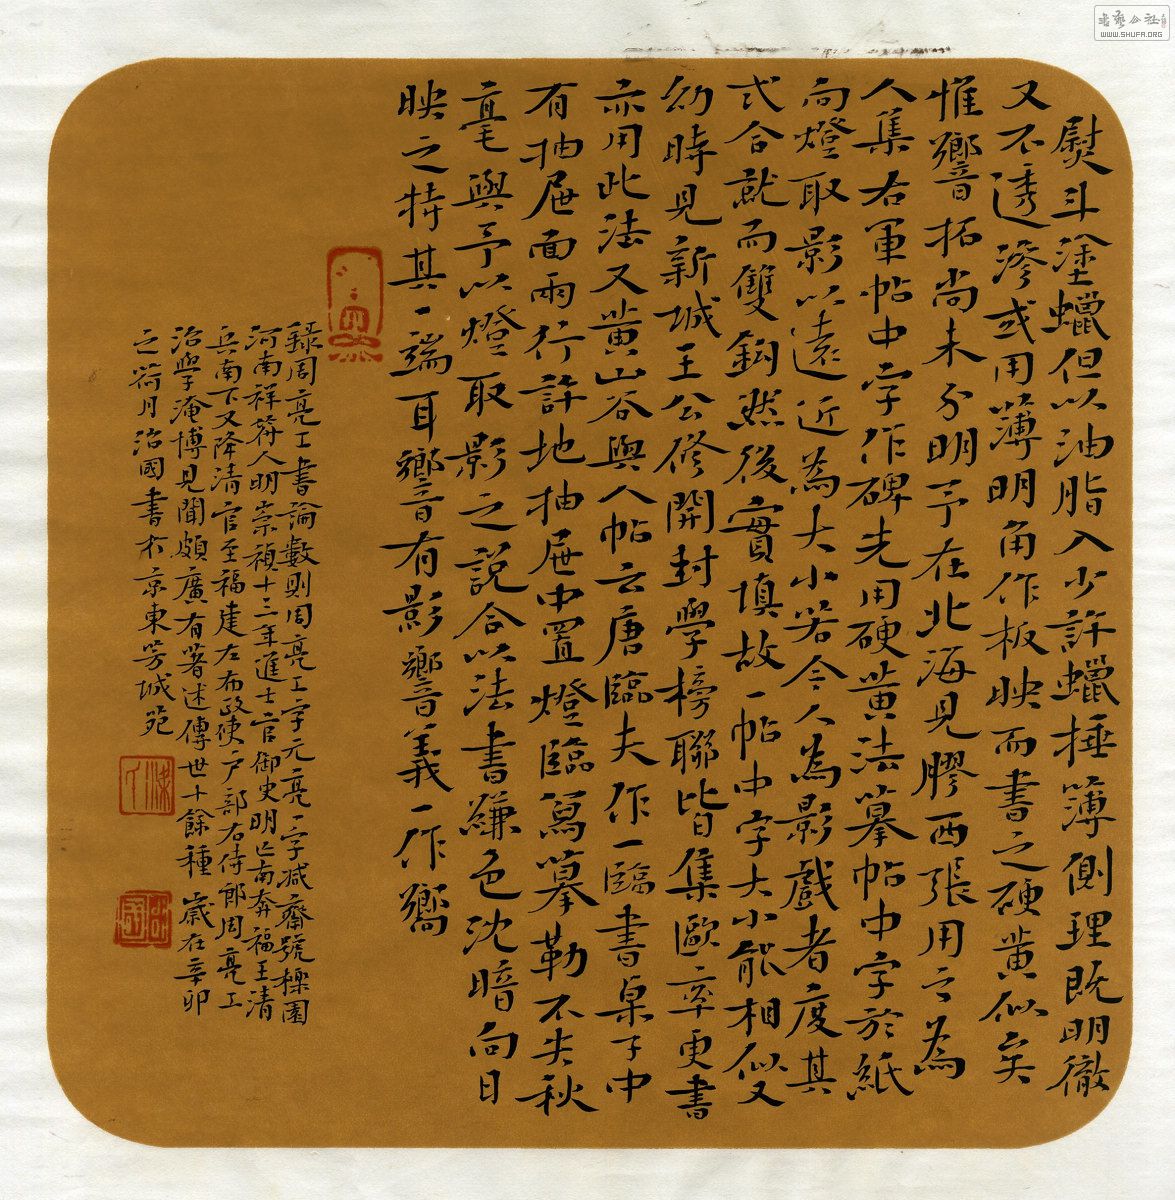 熨斗塗蠟但以油脂入少許蠟捶簿側理既明徹
又不透滲或用薄明角作板映而書之硬黃似矣
惟響拓尚未分明予在北海見膠西張用之為
人集右軍帖中字作碑先用硬黃法摹帖中字於紙
向燈取影以遠近為大小若今人為影戲者度其
式合就而雙鉤然後實填故一帖中字大小能相似又
幼時見新城王公修開封學榜聯皆集歐率更書
亦用此法又黃山谷與人帖云唐臨夫作一臨書桌子中
有抽屜面兩行許地抽屜中置燈臨寫摹勒不失秋
毫與予以燈取影之說合以法書縑色沈暗向日
映之特其一端耳響有影響義一作嚮
錄周亮工書論數則周亮工字元亮一字減齋號櫟園
河南祥符人明崇禎十三年進士官御史明亡南奔福王清
兵南下又降清官至福建左布政使户部右侍郎周亮工
治學淹博見聞頗廣有著述傳世十餘種歲在辛卯
之荷月治國書於京東芳城苑
書藝公社
WWW.SHUFA.ORG